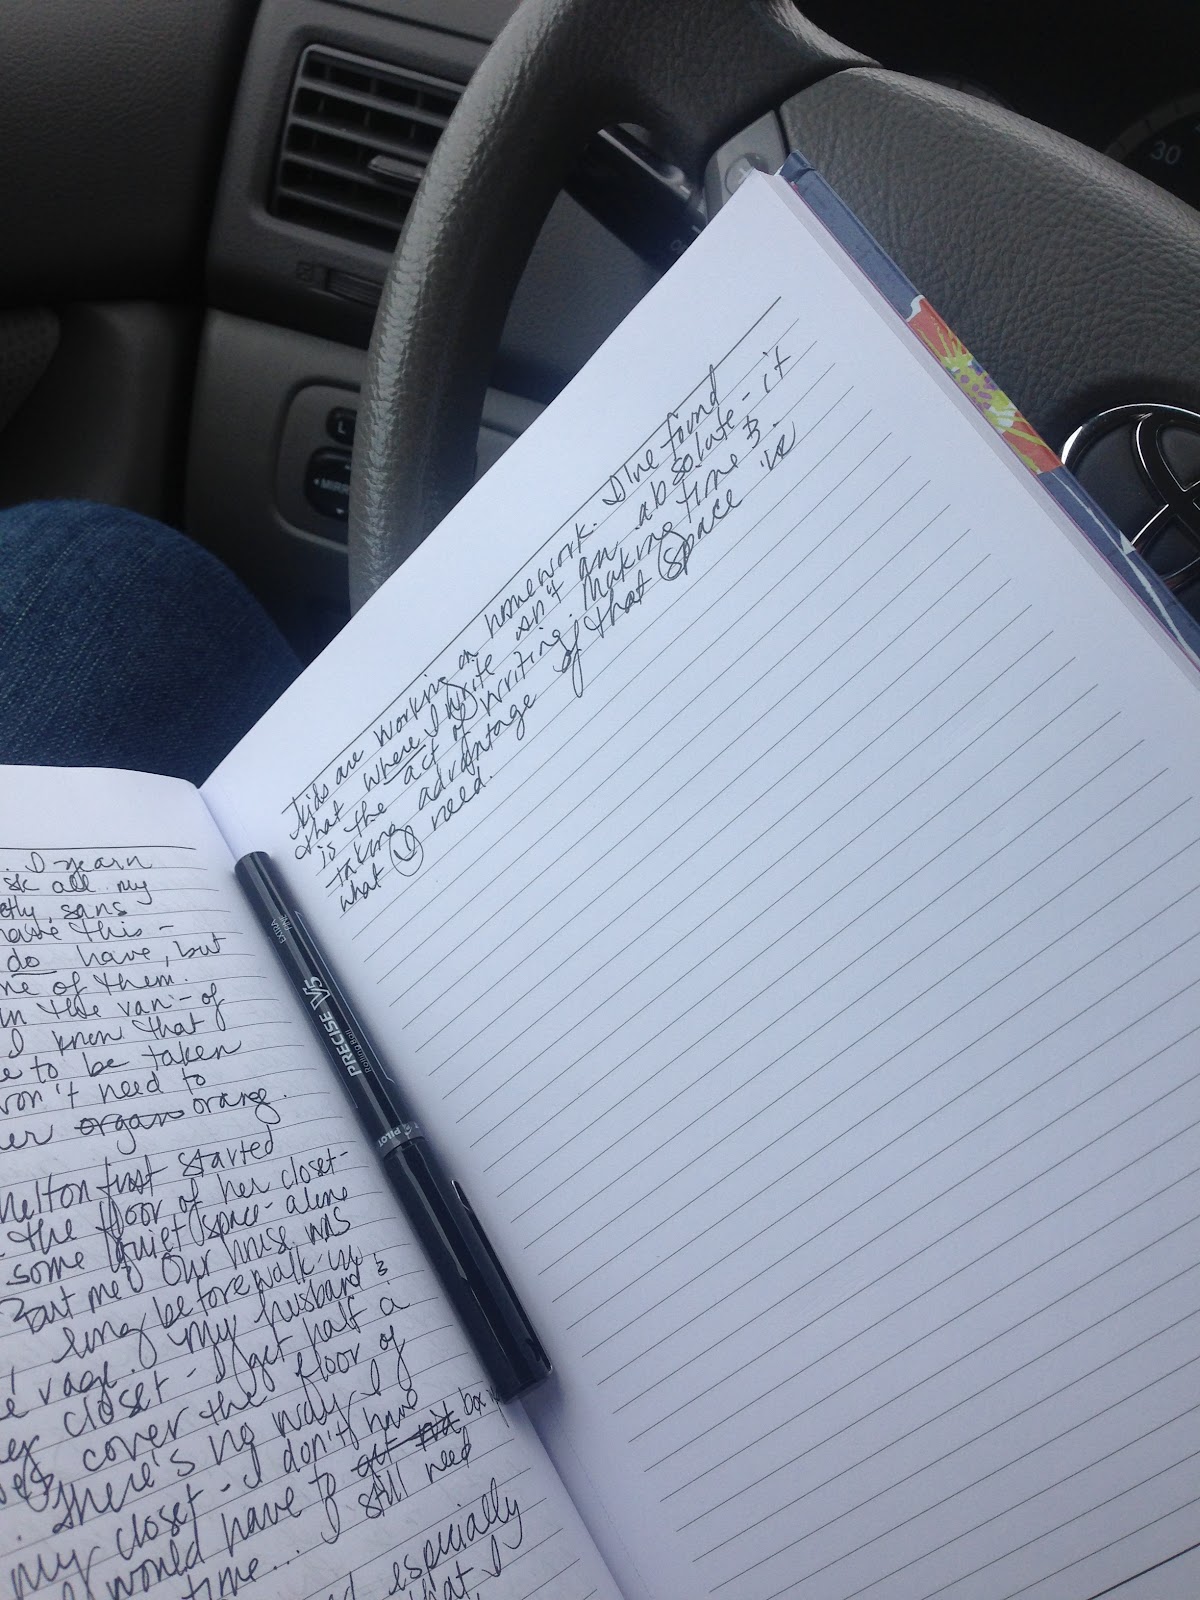 I yearn
sk all my
etly, sans
have this -
do have, but
me of them.
in the van - of
I know that
e to be taken
won't need to
er organ orange.
Melton first started
the floor of her closet -
some quiet space - alone
But me? Our house was
long before walk-in
e rage. My husband &
closet - I get half a
cover the floor of
. There's no way I
my closet - I don't have
would have to box in
time... I still need
especially
that, I
kids are working on homework. I've found
that where I write isn't an absolute - it
is the act of writing. Making time &
taking advantage of that space is
what I need.
PRECISE V5
ROLLING BALL
EXTRA FINE
PILOT
MIRR
L
30